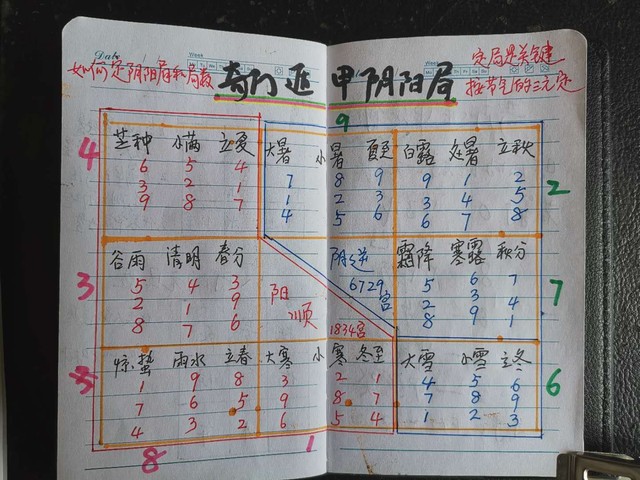 Date
Week
如何定阴阳局和局数
奇门遁甲阴阳局
定局是关键
按节气的三元定
9
4
芒种 小满 立夏 大暑 小暑 夏至 白露 处暑 立秋
6 5 4 7 8 9 9 1 2
3 2 1 1 2 3 3 4 5
9 8 7 4 5 6 6 7 8
2
3
谷雨 清明 春分 阳顺 阴逆 霜降 寒露 秋分
5 4 3 6729宫 5 6 7
2 1 9 2 3 4
8 7 6 1834宫 8 9 1
7
惊蛰 雨水 立春 大寒 小寒 冬至 大雪 小雪 立冬
1 9 8 3 2 1 4 5 6
7 6 5 9 8 7 7 8 9
4 3 2 6 5 4 1 2 3
6
8
1